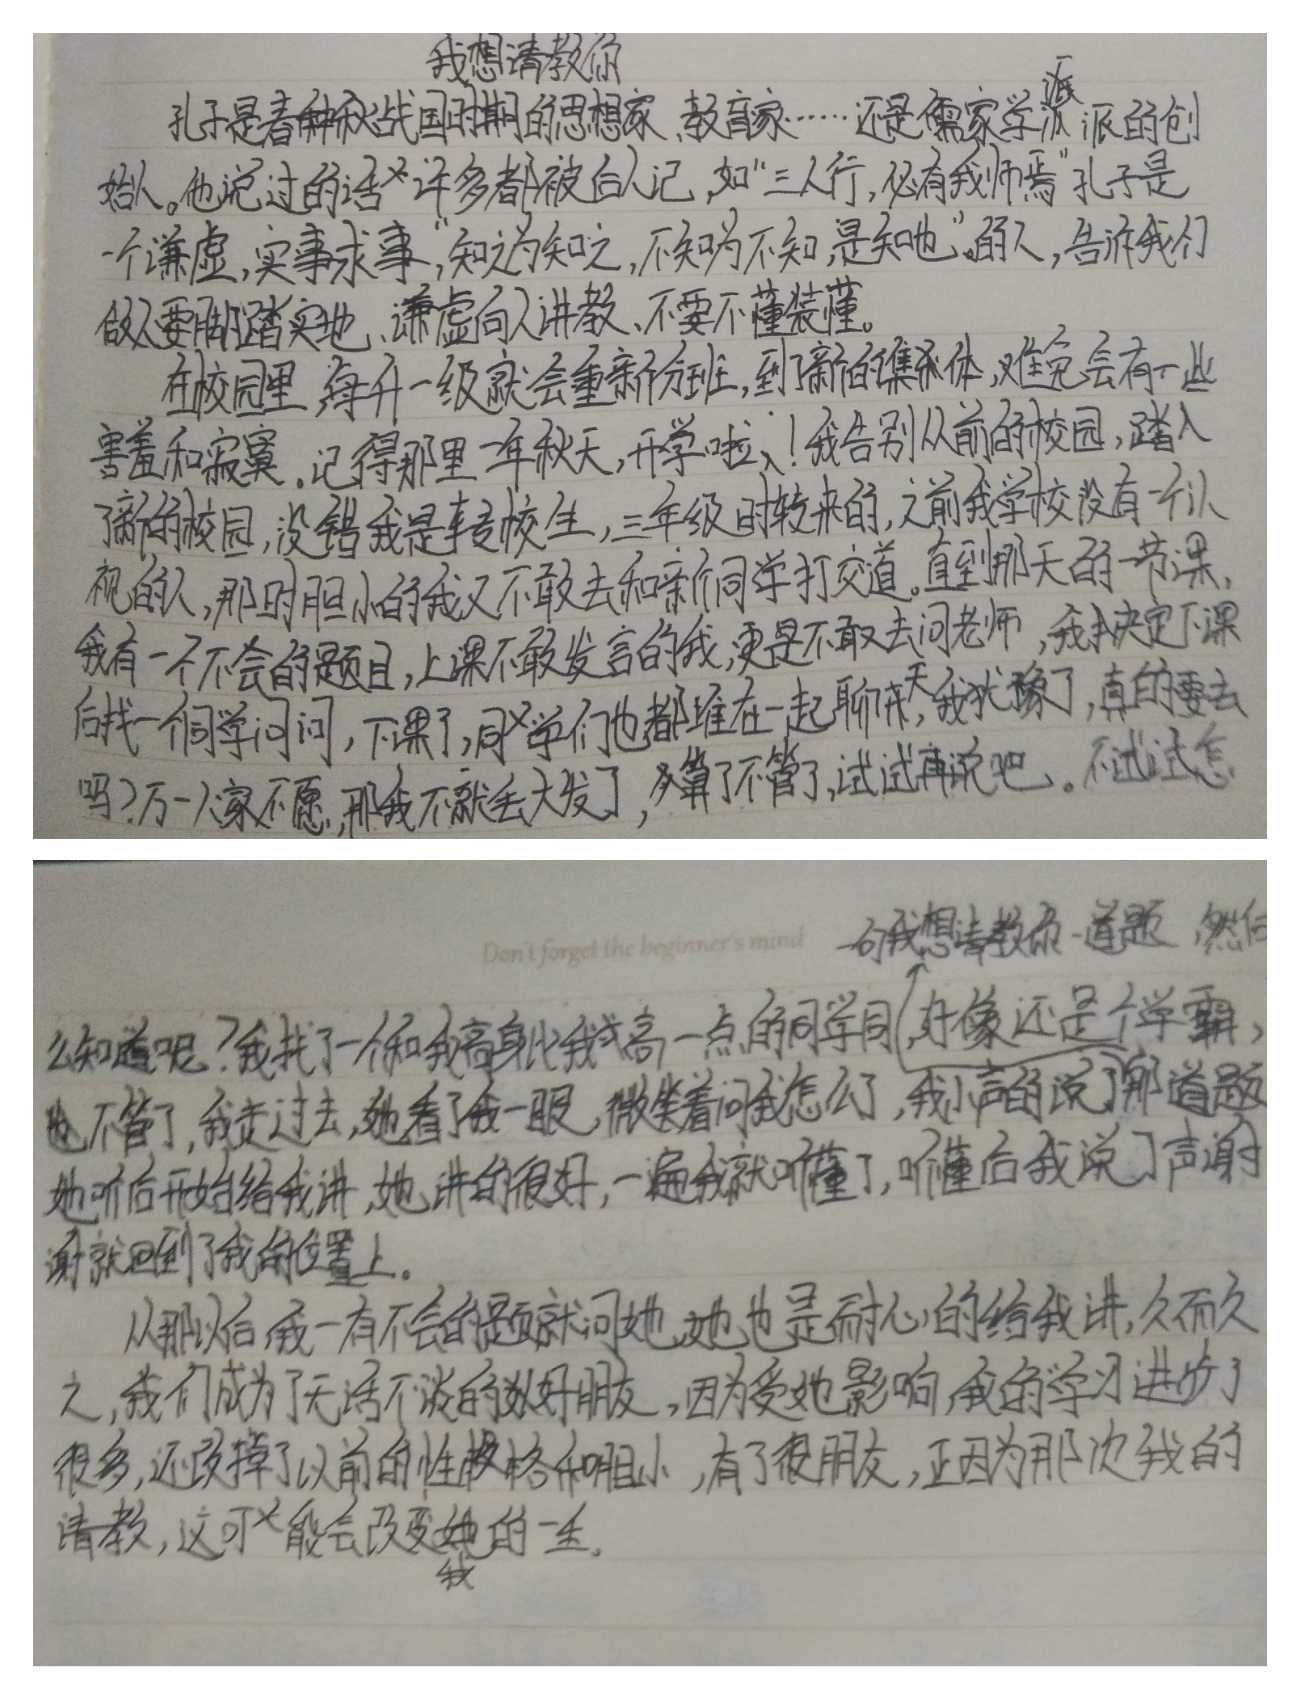 我想请教你
孔子是春秋战国时期的思想家、教育家……还是儒家学派的创
始人。他说过的话许多都被后人记,如“三人行,必有我师焉”孔子是
一个谦虚,实事求事,“知之为知之,不知为不知,是知也”。的人,告诉我们
做人要脚踏实地、谦虚向人讲教、不要不懂装懂。
在校园里,每升一级就会重新分班,到了新的集体,难免会有一些
害羞和寂寞。记得那里一年秋天,开学啦!我告别从前的校园,踏入
了新的校园,没错我是转校生,三年级时转来的,之前我学校没有一个认
视的人,那时胆小的我又不敢去和新同学打交道。直到那天的一节课,
我有一个不会的题目,上课不敢发言的我,更是不敢去问老师,我决定下课
后找一个同学问问,下课了,同学们也都堆在一起聊天,我犹豫了,真的要去
吗?万一人家不愿,那我不就丢大发了,算了不管了,试试再说吧。不试试怎
Don't forget the beginner's mind
一句我想请教你一道题,然后
么知道呢?我找了一个和我高身比我高一点的同学同,好像还是个学霸,
也不管了,我走过去,她看了我一眼,微笑着问我怎么了,我小声的说了那道题
她听后开始给我讲,她讲的很好,一遍我就听懂了,听懂后我说了声谢
谢就回到了我的位置上。
从那以后,我一有不会的题就问她,她也是耐心的给我讲,久而久
之,我们成为了无话不谈的好朋友,因为受她影响,我的学习进步了
很多,还改掉了以前的性格和胆小,有了很朋友,正因为那次我的
请教,这可能会改变我的一生。